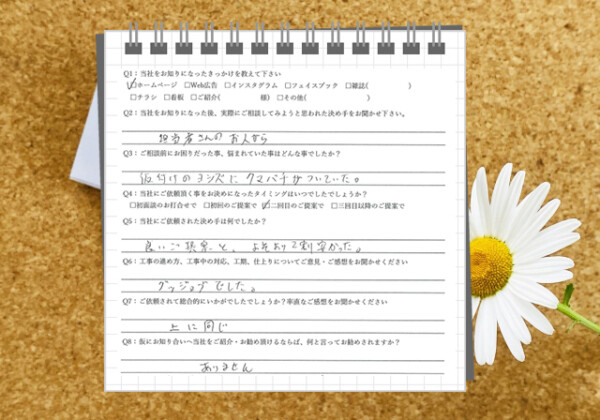 Q1：当社をお知りになったきっかけを教えて下さい
☑ホームページ □Web広告 □インスタグラム □フェイスブック □雑誌( )
□チラシ □看板 □ご紹介( 様) □その他( )
Q2：当社をお知りになった後、実際にご相談してみようと思われた決め手をお聞かせ下さい。
担当者さんのお人がら
Q3：ご相談前にお困りだった事、悩まれていた事はどんな事でしたか？
日よけのヨシズにクマバチがついていた。
Q4：当社にご依頼頂く事をお決めになったタイミングはいつでしたでしょうか？
□初面談のお打合せで □初回のご提案で ☑二回目のご提案で □三回目以降のご提案で
Q5：当社にご依頼された決め手は何でしたか？
良いご提案と、よそより2割安かった。
Q6：工事の進め方、工事中の対応、工期、仕上りについてご意見・ご感想をお聞かせください
グッジョブでした。
Q7：ご依頼されて総合的にいかがでしたでしょうか？率直なご感想をお聞かせください
上に同じ
Q8：仮にお知り合いへ当社をご紹介・お勧め頂けるならば、何と言ってお勧めされますか？
ありません